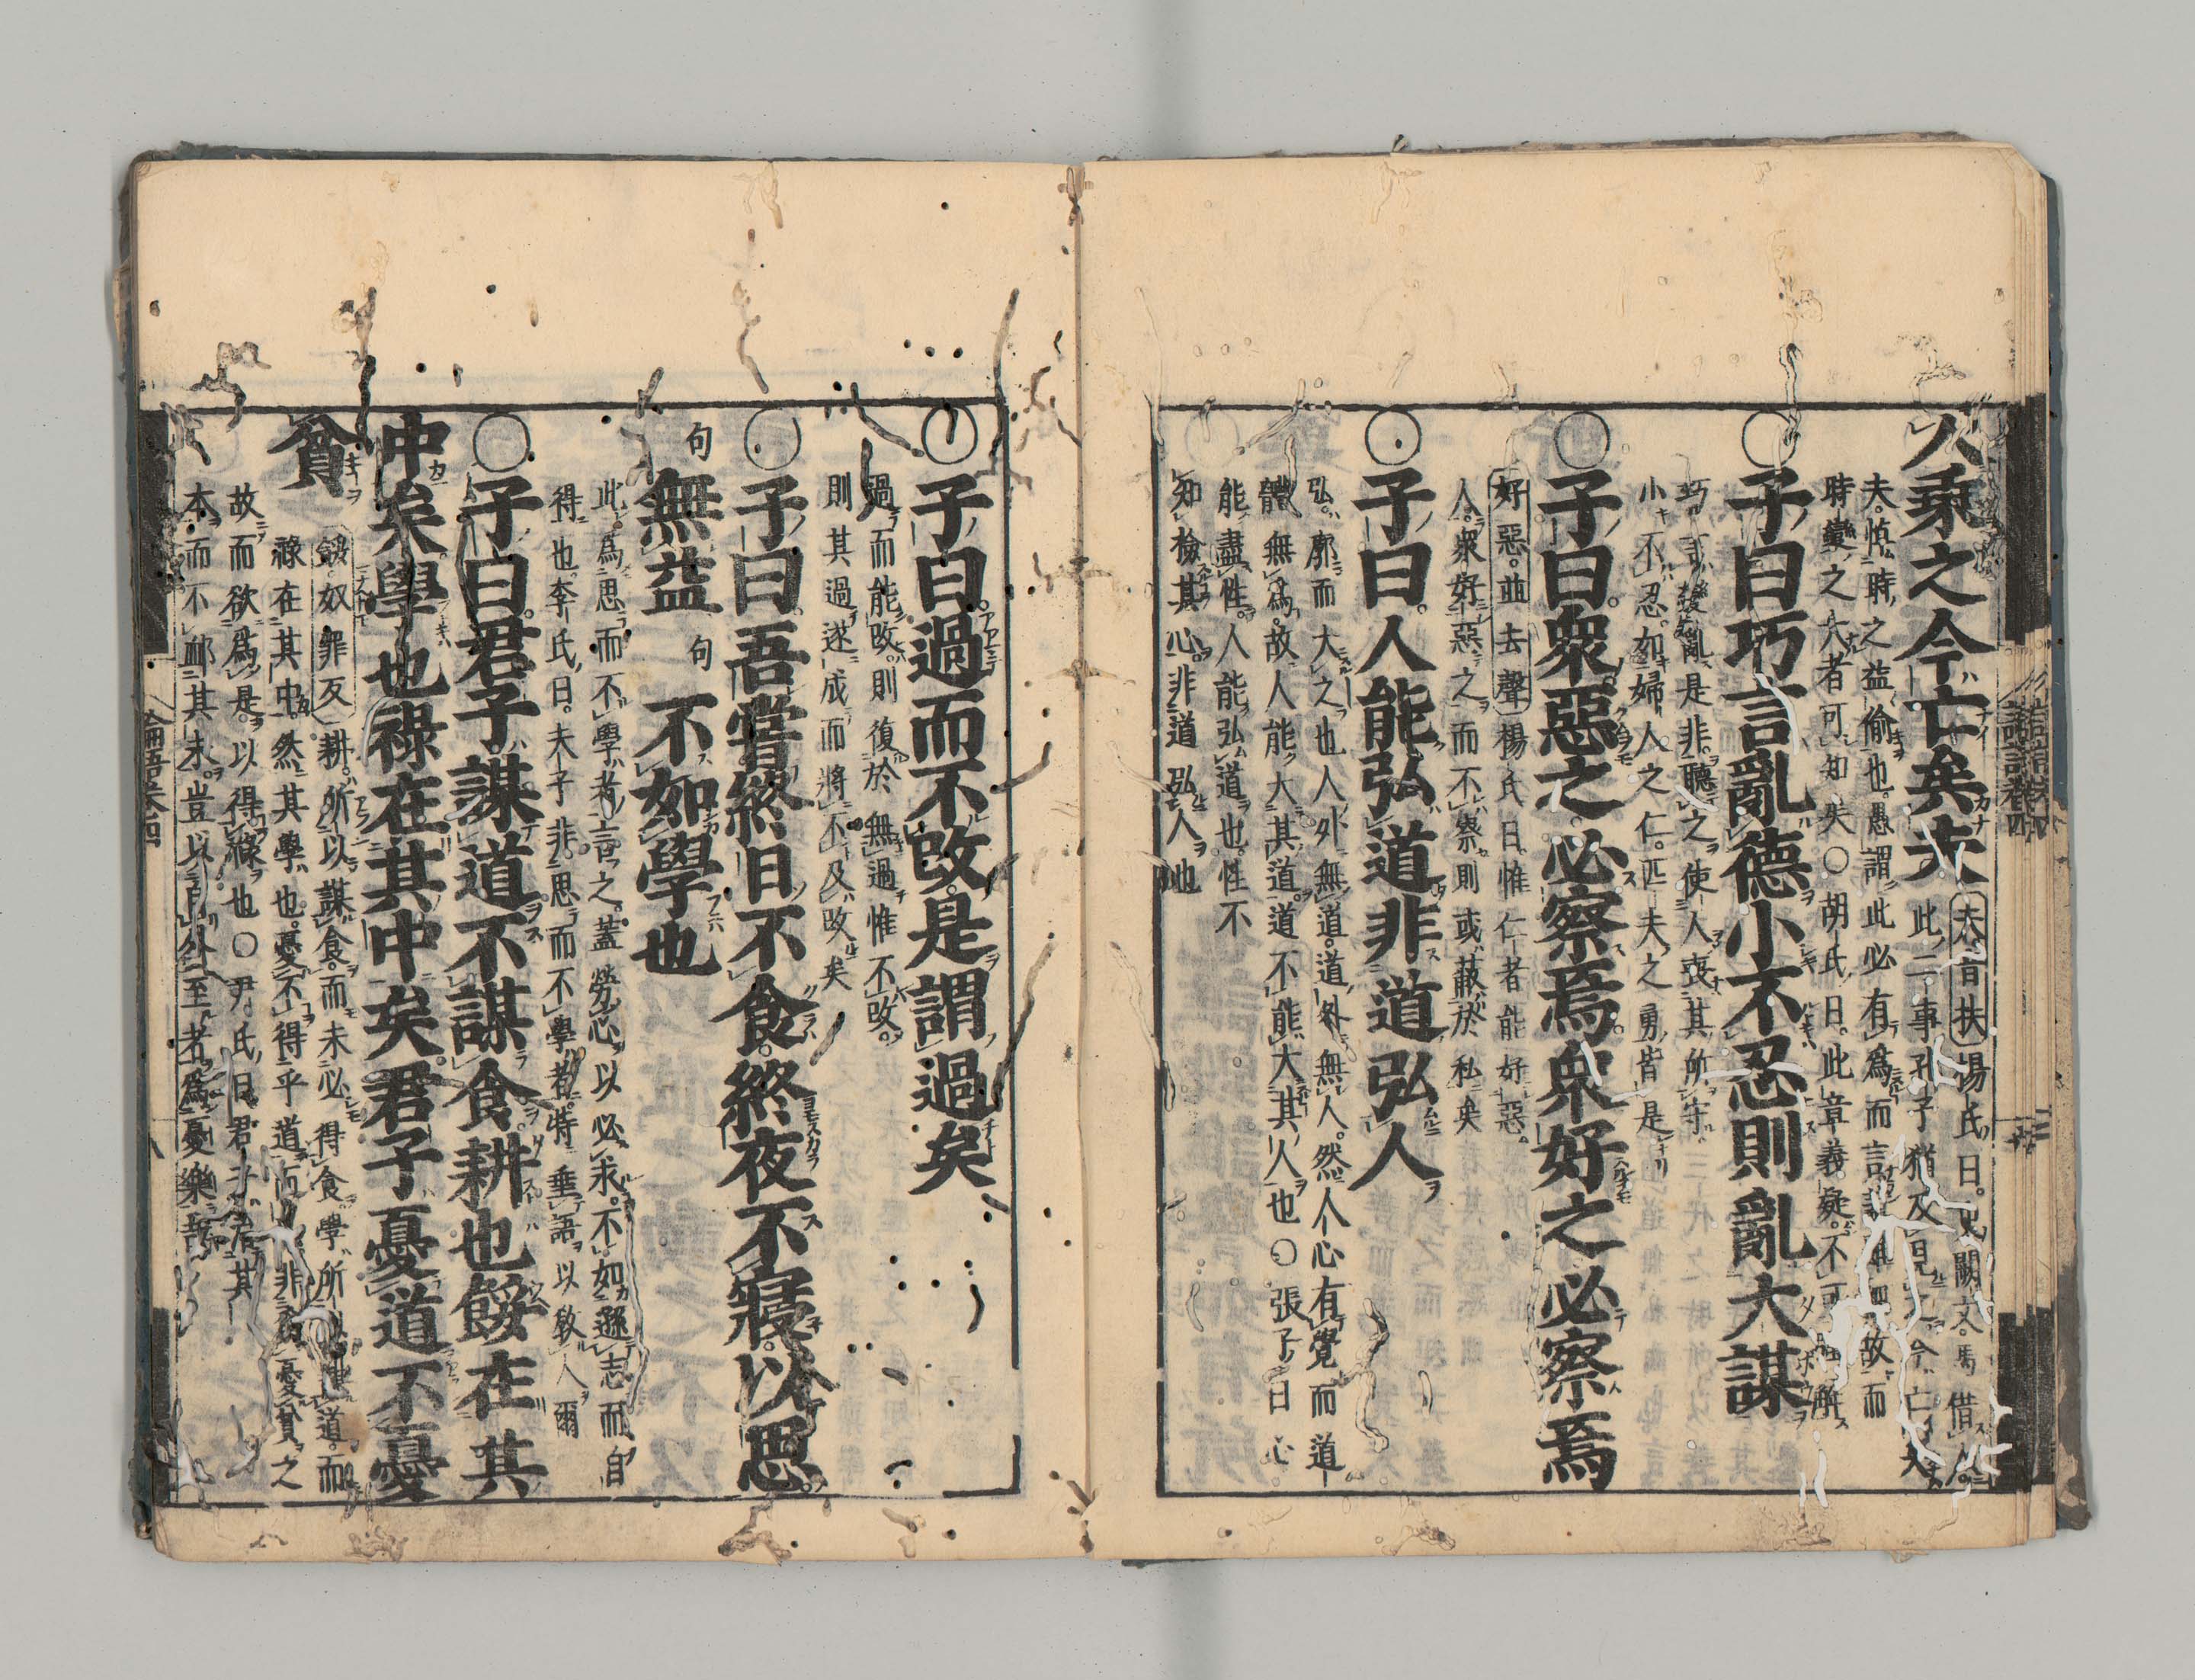 人乘之今亡矣夫 夫音扶 楊氏曰史闕文馬借人
此二事孔子猶及見之今亡矣
夫悼時之益偷也愚謂此必有爲而言 故而
時變之大者可知矣〇胡氏曰此章義疑不可 解
〇子曰巧言亂德小不忍則亂大謀
巧言變亂是非聽之使人喪其所守
小不忍如婦人之仁匹夫之勇皆是
〇子曰衆惡之必察焉衆好之必察焉
好惡並去聲 楊氏曰惟仁者能好惡
人衆好惡之而不察則或蔽於私矣
〇子曰人能弘道非道弘人
弘廓而大之也人外無道道外無人然人心有覺而道
體無爲故人能大其道道不能大其人也〇張子曰心
能盡性人能弘道也性不
知檢其心非道弘人也
〇子曰過而不改是謂過矣
過而能改則復於無過惟不改
則其過遂成而將不及改矣
〇子曰吾嘗終日不食終夜不寢以思
句無益句不如學也
此爲思而不學者言之蓋勞心以必求不如遜志而自
得也李氏曰夫子非思而不學者特垂語以敎人爾
〇子曰君子謀道不謀食耕也餒在其
中矣學也祿在其中矣君子憂道不憂
貧 餒奴罪反 耕所以謀食而未必得食學所以謀道而
祿在其中然其學也憂不得乎道而 非爲憂貧之
故而欲爲是以得祿也〇尹氏曰君子治其
本而不卹其末豈以自外至者爲憂樂哉
論語卷四